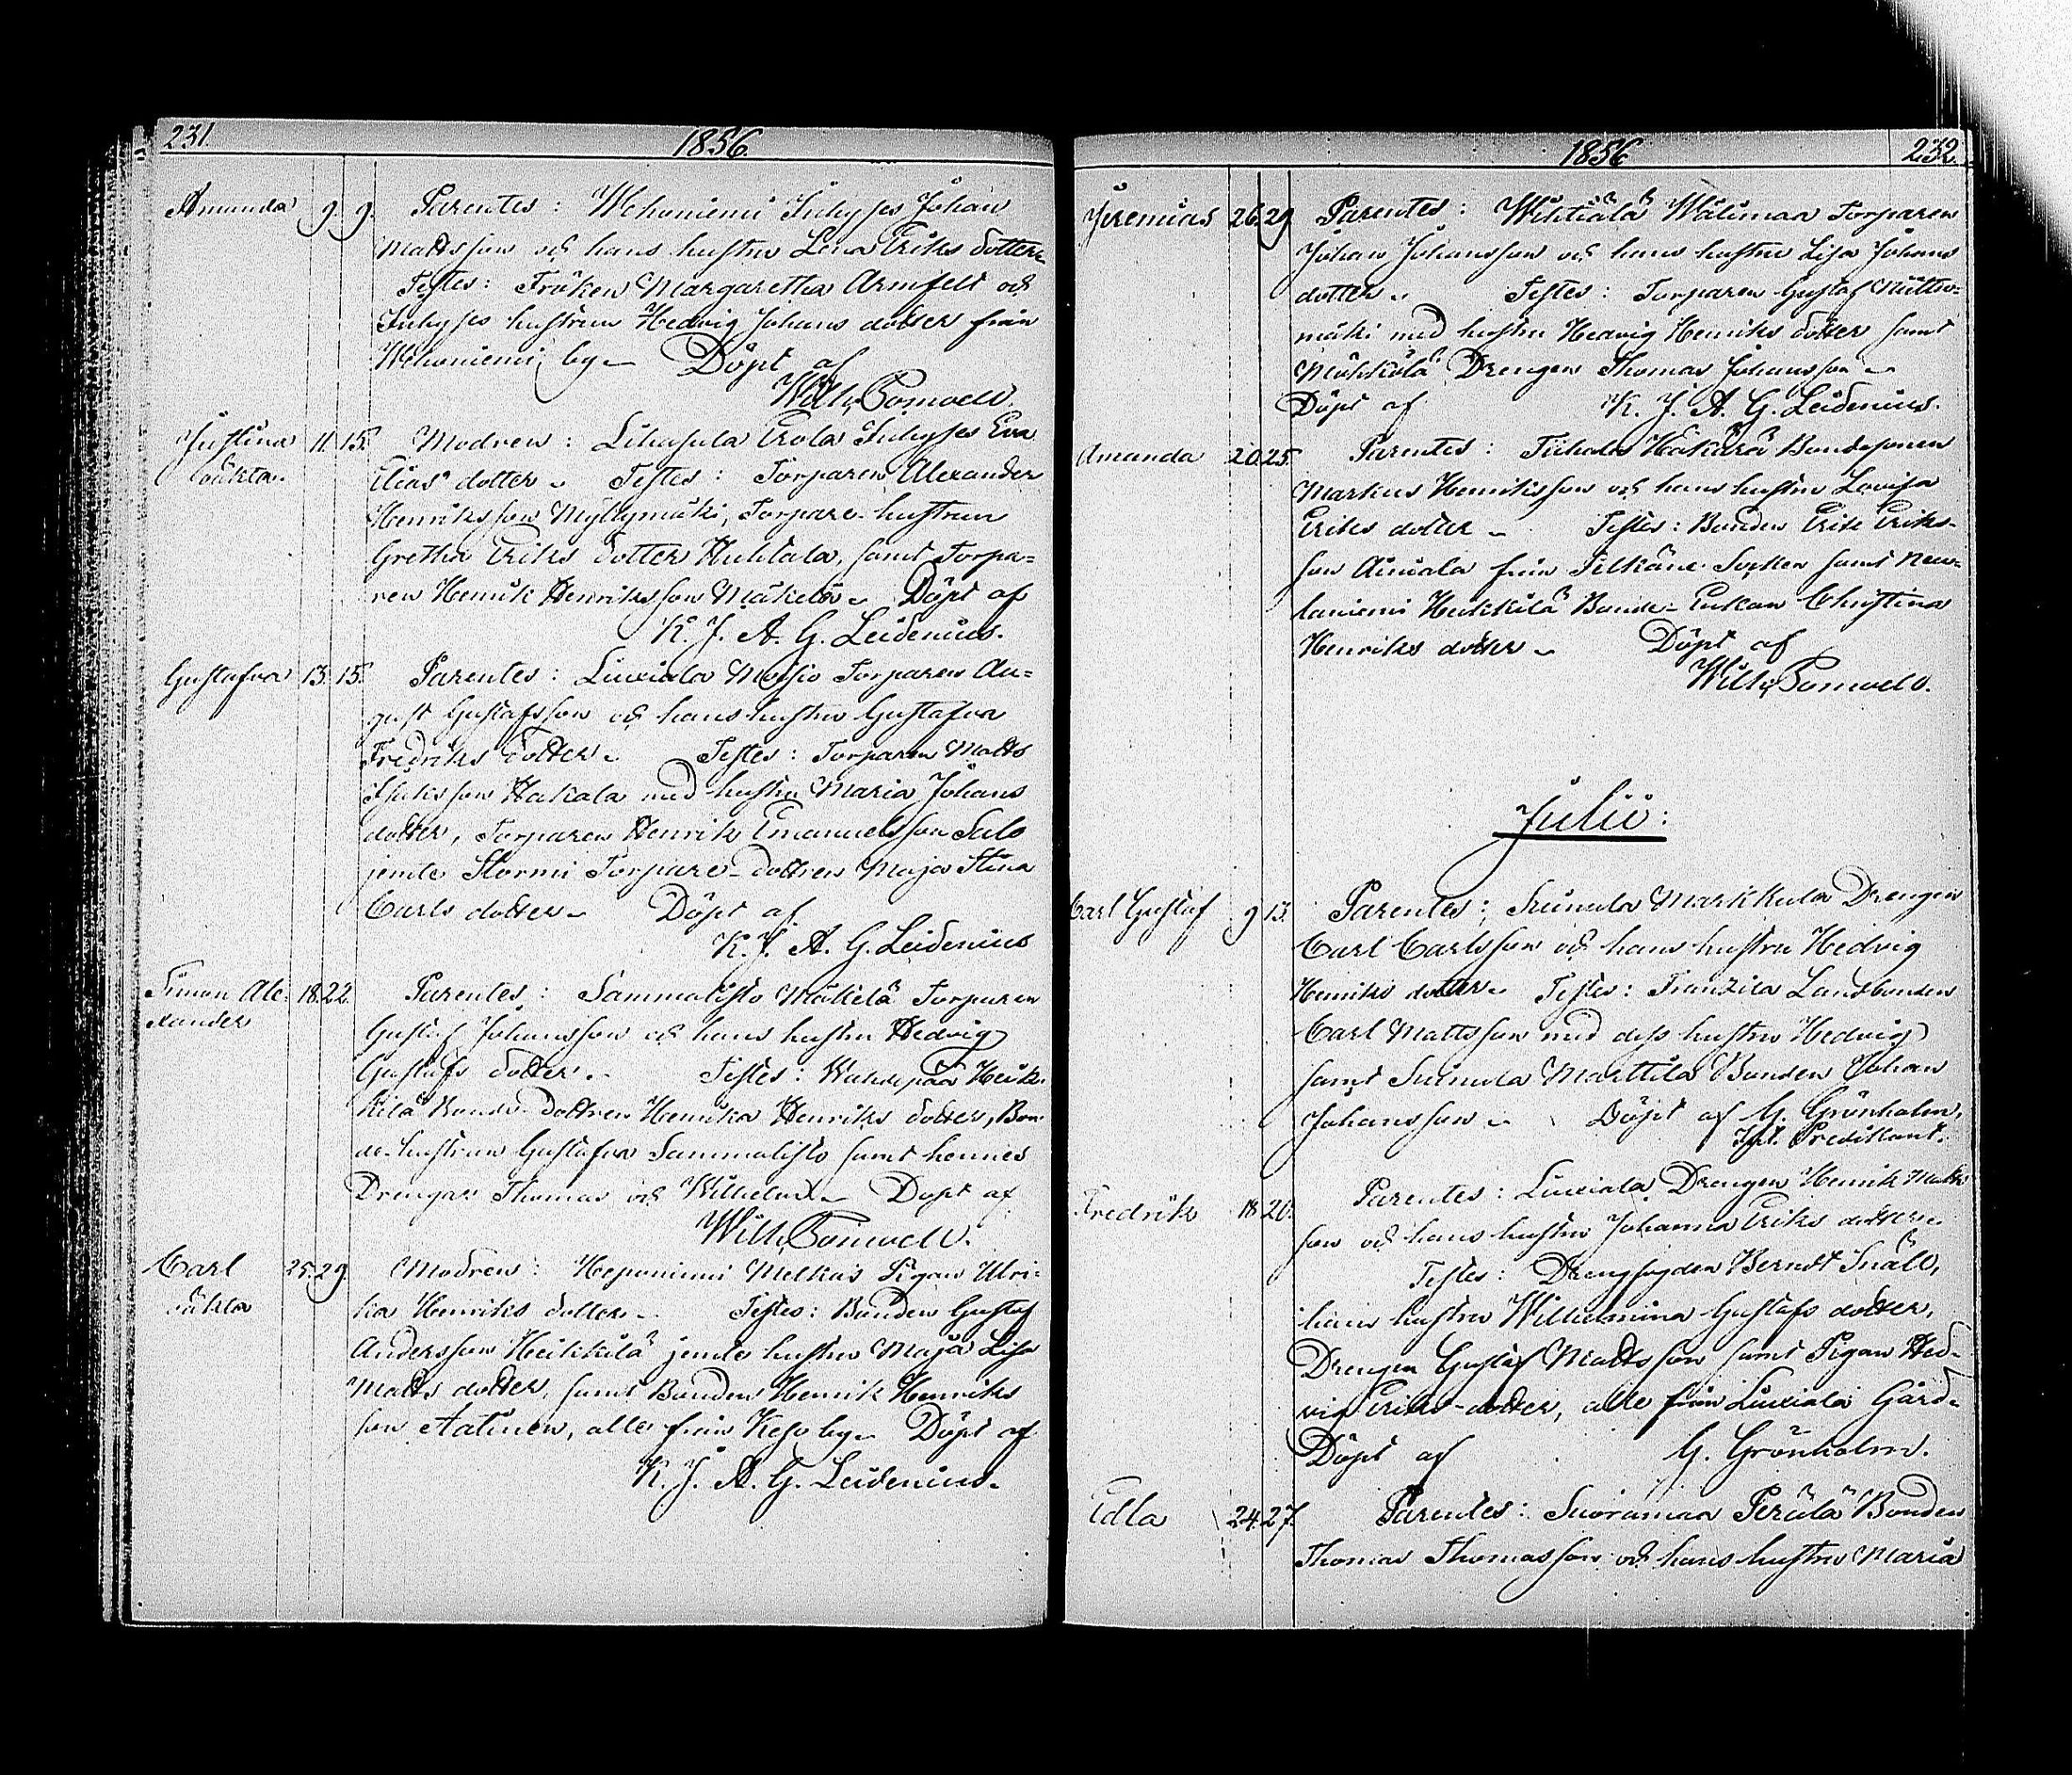 231. 1856.
Amanda 9. 9. Parentes: Wehoniemi Inhyses Johan
Mattsson och hans hustru Lena Eriks dotter
Testes: Fröken Margaretha Armfelt och
Inhyses hustrun Hedvig Johans dotter från
Wehoniemi by Döpt af
Wilh. Ponwell.
Justina 11. 15. Modren: Lihasula Erola Inhyses Eva
oäkta. Elias dotter Testes: Torparen Alexander
Henriksson Myllymäki, Torpare-hustrun
Gretha Eriks dotter Huhtala, samt Torpa-
ren Henrik Henriksson Mäkelä Döpt af
K. J. A. G. Leidenius.
Gustafva 13. 15. Parentes: Liuxiala Moisio Torparen Au-
gust Gustafsson och hans hustru Gustafva
Fredriks dotter Testes: Torparen Matts
Isaksson Hakala med hustru Maria Johans
dotter, Torparen Henrik Emanuelsson Salo
jemte Stormi Torpare-dottren Maja Stina
Carls dotter Döpt af
K. J. A. G. Leidenius
Simon Ale- 18. 22. Parentes: Sammalisto Mäkelä Torparen
xander Gustaf Johansson och hans hustru Hedvig
Gustafs dotter. Testes: Wahdepää Heik-
kilä Bonde-dottren Henrika Henriks dotter, Bon-
de-hustrun Gustafva Sammalisto samt hennes
Drengar Thomas och Wilhelm Döpt af
Wilh. Ponwell.
Carl 25. 29. Modren: Heponiemi Melkas Pigan Ulri-
oäkta ka Henriks dotter Testes: Bonden Gustaf
Andersson Heikkilä jemte hustru Maja Lisa
Matts dotter, samt Bonden Henrik Henriks
son Aatinen, alle från Keso by Döpt af
K. J. A. G. Leidenius.
1856 232.
Jeremias 26. 29. Parentes: Wihtiälä Wälimaa Torparen
Johan Johansson och hans hustru Lisa Johans
dotter Testes: Torparen Gustaf
mäki med hustru Hedvig Henriks dotter samt
Mökkölä Drengen Thomas Johansson
Döpt af K. J. A. G. Leidenius.
Amanda 20. 25. Parentes: Tiihala Hakara Bondesonen
Markus Henriksson och hans hustru Lovisa
Eriks dotter Testes: Bonden Erik Eriks-
son från Pelkäne Socken samt
Heikkilä Bonde-Enkan Christina
Henriks dotter Döpt af
Wilh. Ponwell.
Julii:
Carl Gustaf 9 13. Parentes: Suinula Markkula Drengen
Carl Carlsson och hans hustru Hedvig
Henriks dotter Testes: Franzila Landbonden
Carl Mattsson med dess hustru Hedvig
samt Suinula Marttila Bonden Johan
Johansson Döpt af G. Grönholm,
Predikant.
Fredrik 18. 20. Parentes: Liuxiala Drengen Henrik Matts
son och hans hustru Johanna Eriks dotter
Testes: Drengfogden Berndt Snäll,
hans hustru Wilhelmina Gustafs dotter,
Drengen Gustaf Mattsson samt Pigan Hed-
vig Eriks-dotter, alle från Liuxiala Gård
Döpt af G. Grönholm.
Edla 24. 27. Parentes: Suoramaa Perälä Bonden
Thomas Thomasson och hans hustru Maria